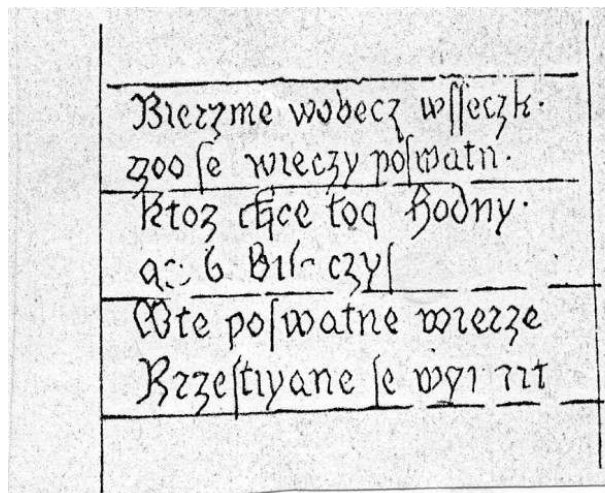 Bierzme wobecz wſſeczk·
zoo ſe wieczy poſwatn·
ktoz chce toq Hodny·
b czyſ
Wte poſwatne wierze
Krzeſtiyane ſe